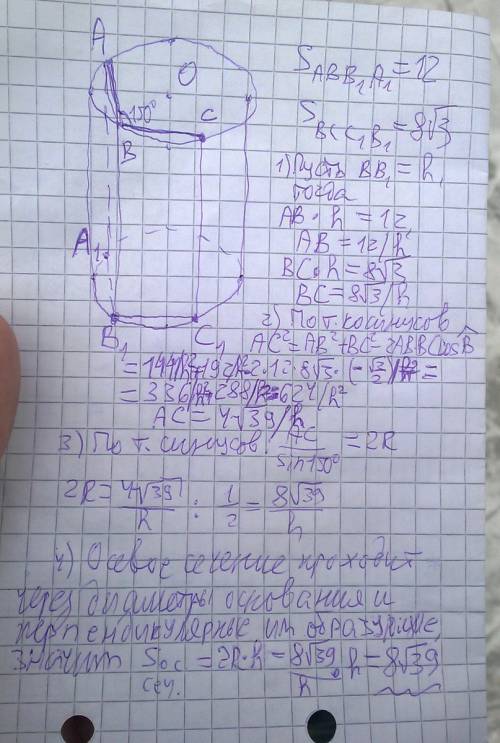 A
O
150°
C
B
A₁
B₁
C₁
S_ABB₁A₁ = 12
S_BCC₁B₁ = 8√3
1) Пусть BB₁ = h,
тогда
AB · h = 12
AB = 12/h
BC · h = 8√3
BC = 8√3/h
2) По т. косинусов
AC² = AB² + BC² - 2ABBCcosB̂
= 144/h² + 192/h² - 2·12·8√3·(-√3/2)/h² =
= 336/h² + 288/h² = 624/h²
AC = 4√39/h
3) По т. синусов AC/sin150° = 2R
2R = 4√39/h : 1/2 = 8√39/h
4) Осевое сечение проходит
через диаметры основания и
перпендикулярные им образующие,
значит S ос. сеч. = 2R·h = 8√39/h · h = 8√39